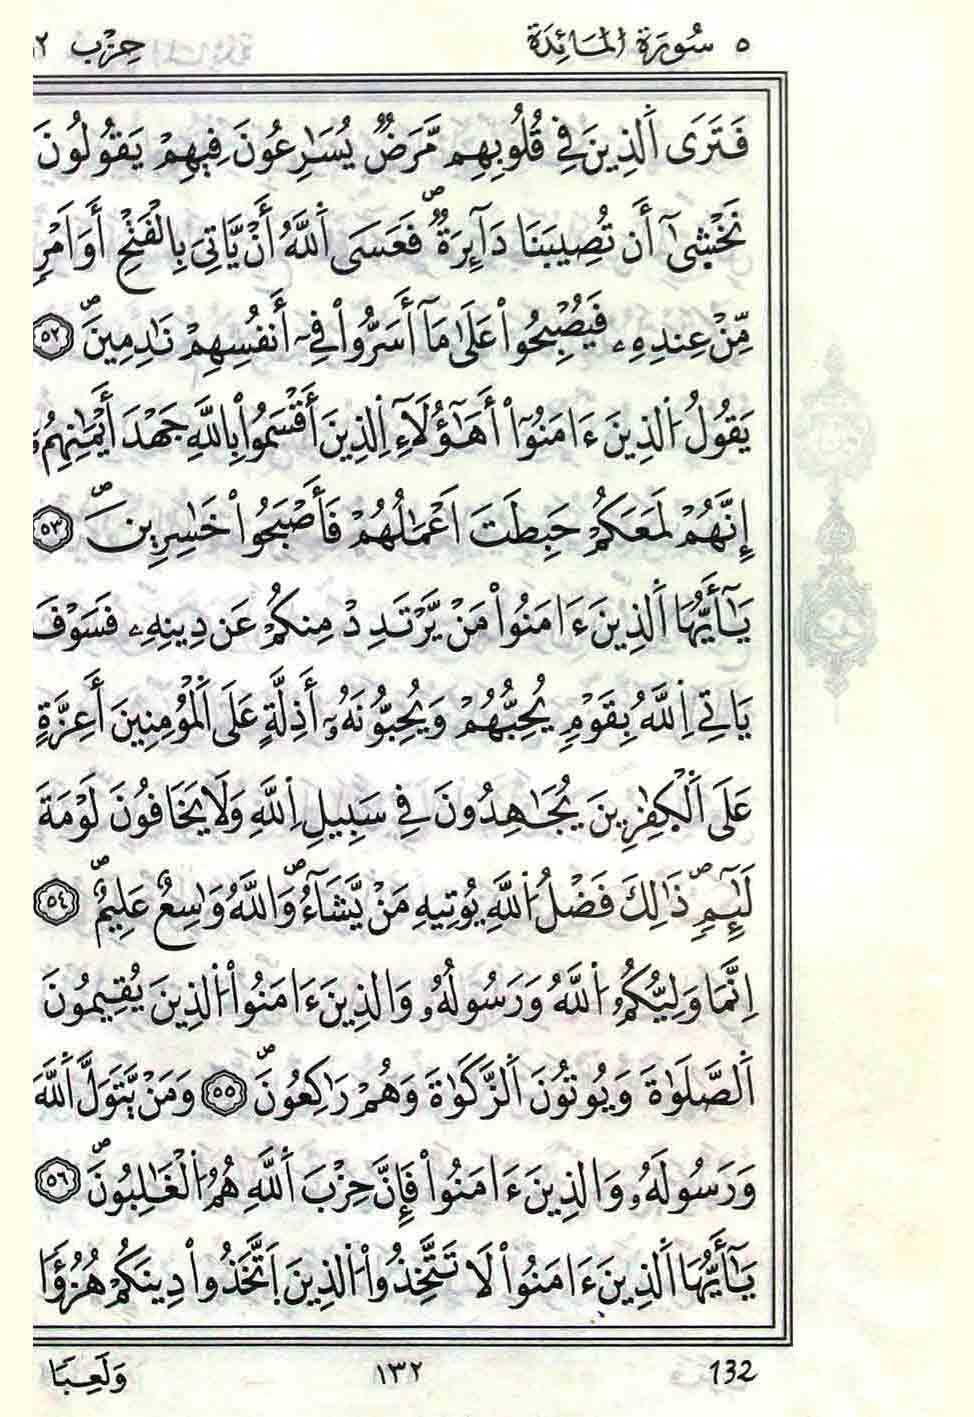 ٥ سُورَةُ الْمَائِدَة حِزْب ١٢
فَتَرَى اَ۬لذِينَ فِے قُلُوبِهِم مَّرَضٞ يُسَٰرِعُونَ فِيهِمْ يَقُولُونَ
نَخْش۪يٰٓ أَن تُصِيبَنَا دَآئِرَةٞۖ فَعَسَى اَ۬للَّهُ أَنْ يَّاتِيَ بِالْفَتْحِ أَوَ اَمْرٖ
مِّنْ عِندِهِۦ فَيُصْبِحُواْ عَلَىٰ مَآ أَسَرُّواْ فِےٓ أَنفُسِهِمْ نَٰدِمِينَۖ ٥٢
يَقُولُ اُ۬لذِينَ ءَامَنُوٓاْ أَهَٰٓؤُلَآءِ اِ۬لذِينَ أَقْسَمُواْ بِاللَّهِ جَهْدَ أَيْمَٰنِهِمُۥٓ
إِنَّهُمْ لَمَعَكُمْ حَبِطَتَ اَعْمَٰلُهُمْ فَأَصْبَحُواْ خَٰسِرِينَۖ ٥٣
يَٰٓأَيُّهَا اَ۬لذِينَ ءَامَنُواْ مَنْ يَّرْتَدِدْ مِنكُمْ عَن دِينِهِۦ فَسَوْفَ
يَاتِے اِ۬للَّهُ بِقَوْمٖ يُحِبُّهُمْ وَيُحِبُّونَهُۥٓ أَذِلَّةٍ عَلَى اَ۬لْمُؤْمِنِينَ أَعِزَّةٍ
عَلَى اَ۬لْكٰ۪فِرِينَ يُجَٰهِدُونَ فِے سَبِيلِ اِ۬للَّهِ وَلَا يَخَافُونَ لَوْمَةَ
لَآئِمٖۖ ذَٰلِكَ فَضْلُ اُ۬للَّهِ يُوتِيهِ مَنْ يَّشَآءُۖ وَاللَّهُ وَٰسِعٌ عَلِيمٌۖ ٥٤
اِنَّمَا وَلِيُّكُمُ اُ۬للَّهُ وَرَسُولُهُۥ وَالذِينَ ءَامَنُواْ اُ۬لذِينَ يُقِيمُونَ
اَ۬لصَّلَوٰةَ وَيُوتُونَ اَ۬لزَّكَوٰةَ وَهُمْ رَٰكِعُونَۖ ٥٥ وَمَنْ يَّتَوَلَّ اَ۬للَّهَ
وَرَسُولَهُۥ وَالذِينَ ءَامَنُواْ فَإِنَّ حِزْبَ اَ۬للَّهِ هُمُ اُ۬لْغَٰلِبُونَۖ ٥٦
يَٰٓأَيُّهَا اَ۬لذِينَ ءَامَنُواْ لَا تَتَّخِذُواْ اُ۬لذِينَ اَ۪تَّخَذُواْ دِينَكُمْ هُزُؤاٗ
132 ١٣٢ وَلَعِبَا